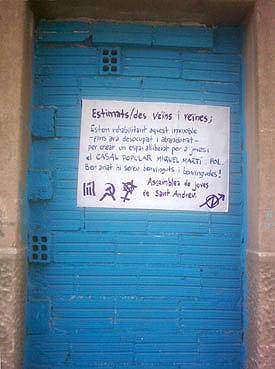 Estimats/des veïns i veïnes;
Estem rehabilitant aquest immoble
-fins ara desocupat i abandonat-
per crear un espai alliberat per a joves i
el CASAL POPULAR MIQUEL MARTÍ i POL.
Ben aviat hi sereu benvinguts i benvingudes!
Assemblea de joves
de Sant Andreu.